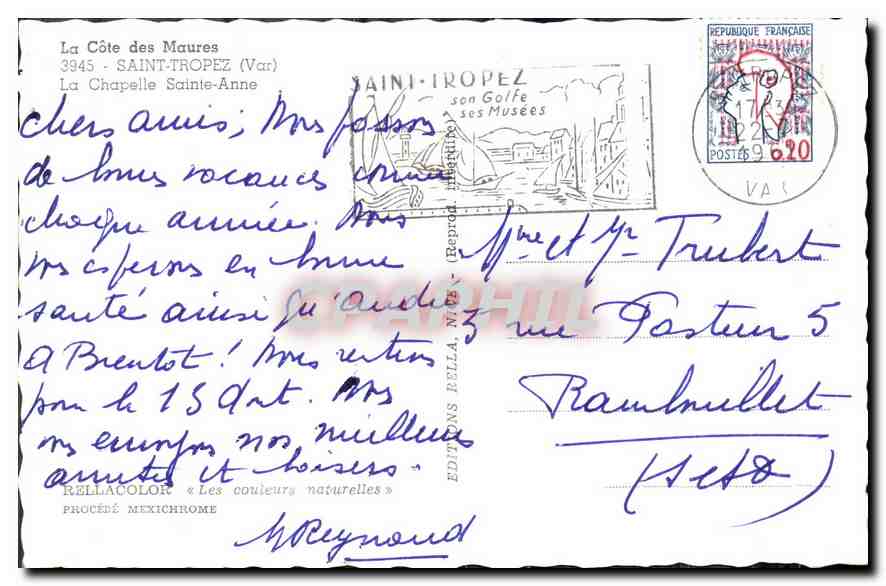 La Côte des Maures
3945 - SAINT-TROPEZ (Var)
La Chapelle Sainte-Anne
RÉPUBLIQUE FRANÇAISE
POSTES 0,20
SAINT-TROPEZ
son Golfe
ses Musées
17 H
22
19
VAR
chers amis, Nous passons
de bonnes vacances comme
chaque année. Nous
vos espérons en bonne
santé ainsi qu'andré
A Bientot ! Nous rentrons
pour le 15 Aout. Nous
vous envoyons nos meilleurs
amitiés et baisers.
M Reynaud
Mme et Mr Trubert
5 rue Pasteur 5
Rambouillet
(S et O)
EDITIONS RELLA, NICE - (Reprod. interdite)
RELLACOLOR « Les couleurs naturelles »
PROCÉDÉ MEXICHROME
CPAPHIL